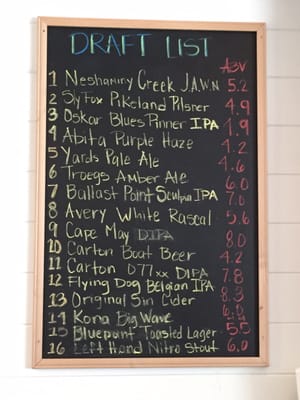 DRAFT LIST
ABV
1 Neshaminy Creek J.A.W.N 5.2
2 Sly Fox Pikeland Pilsner 4.9
3 Oskar Blues Pinner IPA 4.9
4 Abita Purple Haze 4.2
5 Yards Pale Ale 4.6
6 Troegs Amber Ale 6.0
7 Ballast Point Sculpin IPA 7.0
8 Avery White Rascal 5.6
9 Cape May DIPA 8.0
10 Carton Boat Beer 4.2
11 Carton 077xx DIPA 7.8
12 Flying Dog Belgian IPA 8.3
13 Original Sin Cider 6.0
14 Kona Big Wave
15 Bluepoint Toasted Lager 5.5
16 Left Hand Nitro Stout 6.0